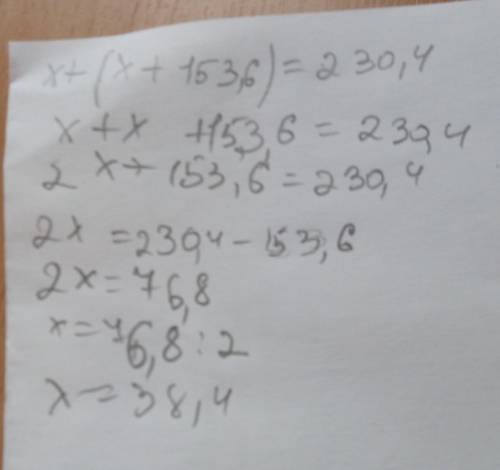 x+(x+153,6)=230,4
x+x +153,6=230,4
2x+153,6=230,4
2x=230,4-153,6
2x=76,8
x=76,8:2
x=38,4